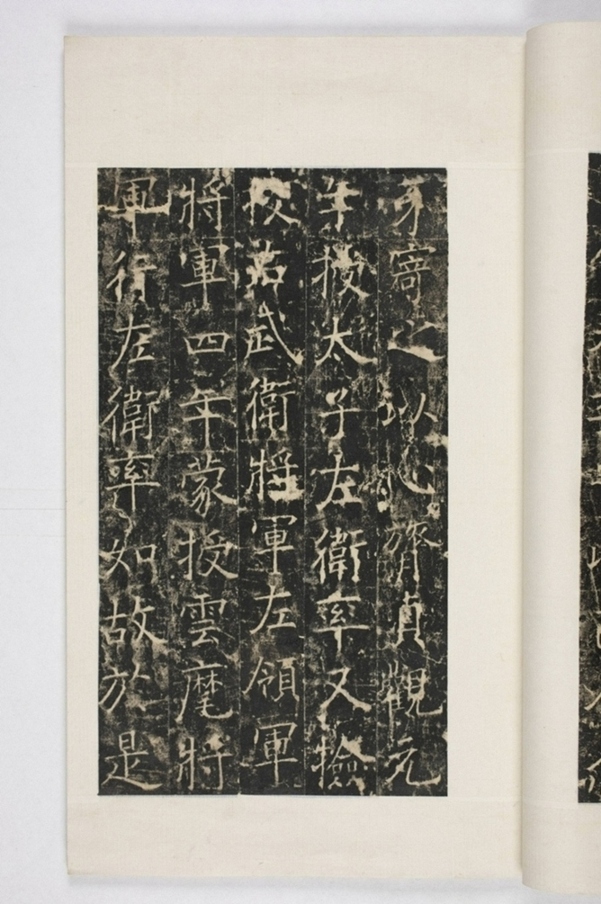 牙寄之以心膂貞觀元
年授太子左衛率又檢
校右武衛將軍左領軍
將軍四年蒙授雲麾將
軍行左衛率如故於是